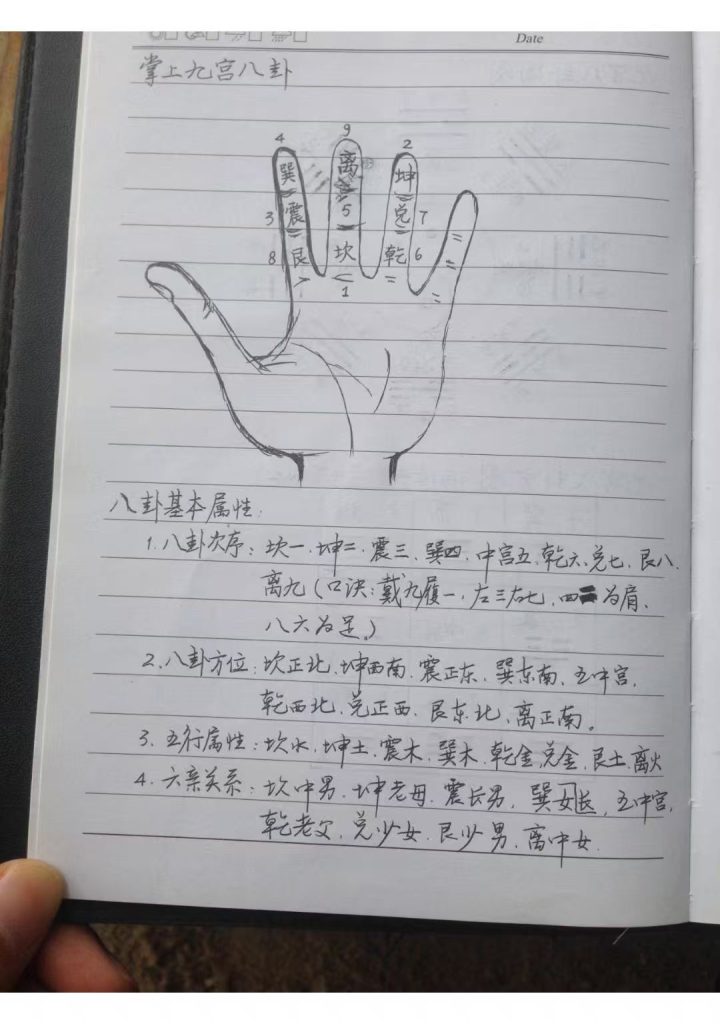 Date
掌上九宫八卦
4 9 2
巽 离 坤
3 震 5 兑 7
8 艮 坎 乾 6
1
八卦基本属性:
1.八卦次序:坎一、坤二、震三、巽四、中宫五、乾六、兑七、艮八、
离九(口诀:戴九履一,左三右七,四二为肩、
八六为足。)
2.八卦方位:坎正北、坤西南、震正东、巽东南、五中宫、
乾西北、兑正西、艮东北、离正南。
3.五行属性:坎水、坤土、震木、巽木、乾金、兑金、艮土、离火
4.六亲关系:坎中男、坤老母、震长男、巽女长、五中宫、
乾老父、兑少女、艮少男、离中女.